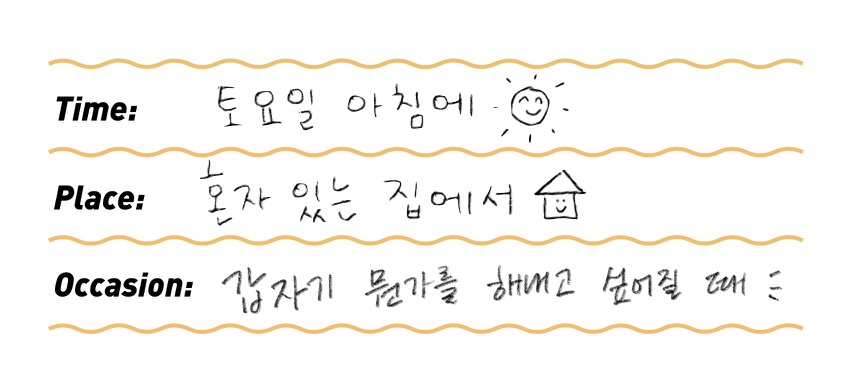 Time: 토요일 아침에
Place: 혼자 있는 집에서
Occasion: 갑자기 뭔가를 해내고 싶어질 때